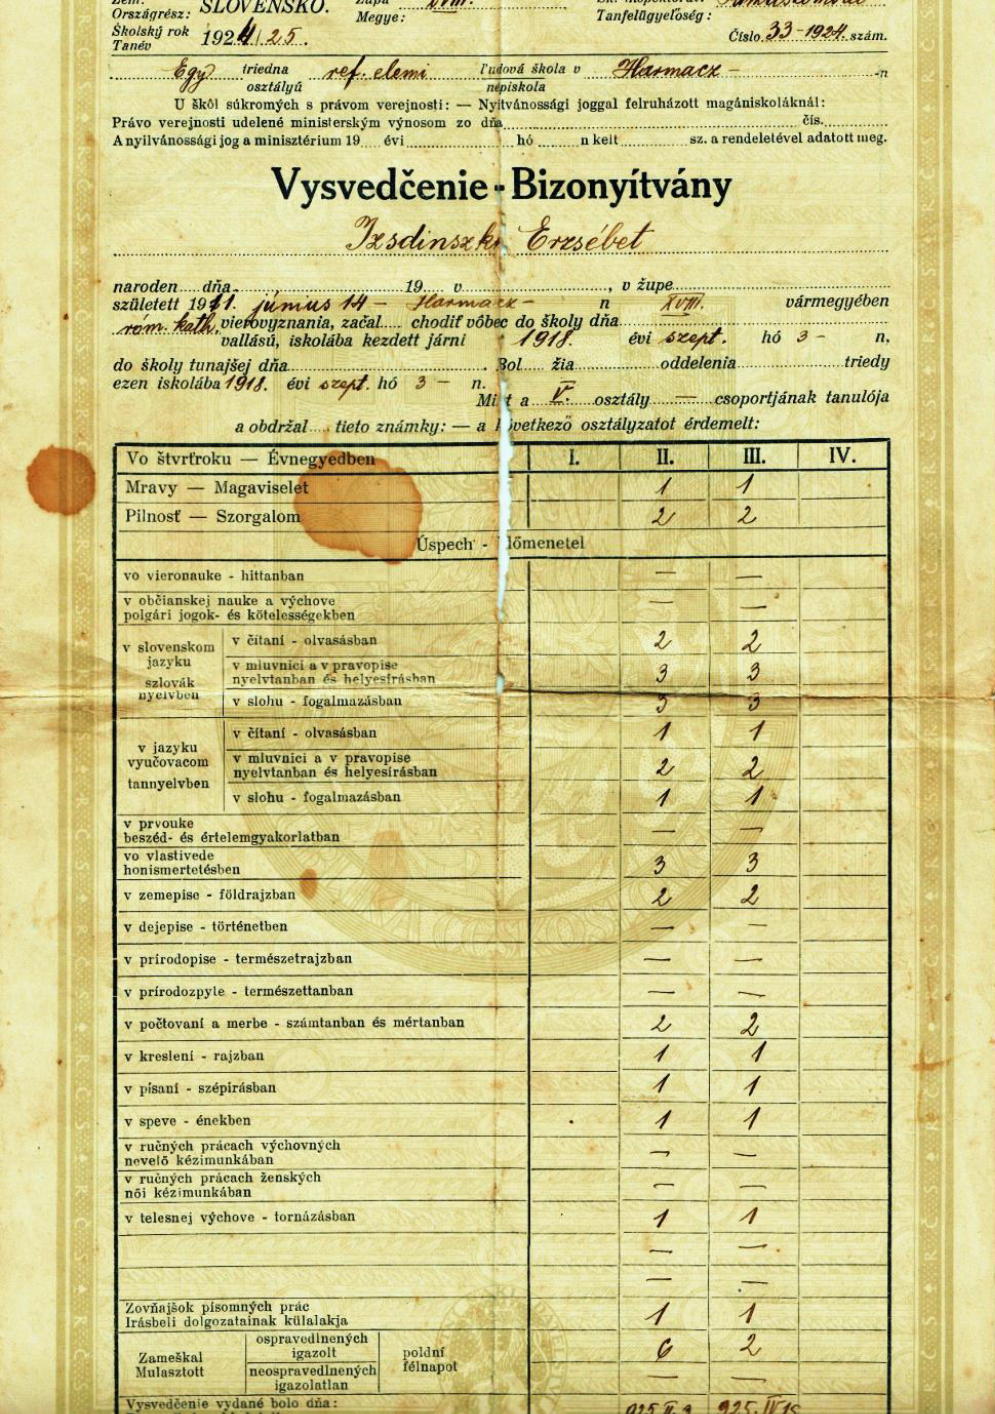 SLOVENSKO.
Országrész:
Megye: XVIII.
Tanfelügyelőség:
Školský rok
Tanév 1924/25.
Číslo 33-1924. szám.
Egy triedna ref. elemi ľudová škola v Harmacz - -n
osztályú népiskola
U škôl súkromých s právom verejnosti: — Nyitvánossági joggal felruházott magániskoláknál:
Právo verejnosti udelené ministerským výnosom zo dňa čís.
A nyilvánossági jog a minisztérium 19 évi hó n kelt sz. a rendeletével adatott meg.
Vysvedčenie - Bizonyítvány
Izsdinszki Erzsébet
naroden dňa 19 v , v župe
született 1911. június 14 - Harmacz - n XVIII. vármegyében
róm. kath. vierovyznania, začal chodiť vôbec do školy dňa
vallású, iskolába kezdett járni 1918. évi szept. hó 3 - n.
do školy tunajšej dňa Bol žia oddelenia triedy
ezen iskolába 1918. évi szept. hó 3 - n.
Mint a V. osztály — csoportjának tanulója
a obdržal tieto známky: — a következő osztályzatot érdemelt:
Vo štvrťroku — Évnegyedben I. II. III. IV.
Mravy — Magaviselet 1 1
Pilnosť — Szorgalom 2 2
Úspech - Előmenetel
vo vieronauke - hittanban — —
v občianskej nauke a výchove
polgári jogok- és kötelességekben — —
v slovenskom
jazyku
szlovák
nyelvben
v čítaní - olvasásban 2 2
v mluvnici a v pravopise
nyelvtanban és helyesírásban 3 3
v slohu - fogalmazásban 3 3
v jazyku
vyučovacom
tannyelvben
v čítaní - olvasásban 1 1
v mluvnici a v pravopise
nyelvtanban és helyesírásban 2 2
v slohu - fogalmazásban 1 1
v prvouke
beszéd- és értelemgyakorlatban — —
vo vlastivede
honismertetésben 3 3
v zemepise - földrajzban 2 2
v dejepise - történetben — —
v prírodopise - természetrajzban — —
v prírodozpyte - természettanban — —
v počtovaní a merbe - számtanban és mértanban 2 2
v kreslení - rajzban 1 1
v písaní - szépírásban 1 1
v speve - énekben 1 1
v ručných prácach výchovných
nevelő kézimunkában — —
v ručných prácach ženských
női kézimunkában — —
v telesnej výchove - tornázásban 1 1
— —
— —
Zovňajšok písomných prác
Irásbeli dolgozatainak külalakja 1 1
Zameškal
Mulasztott
ospravedlnených
igazolt
neospravedlnených
igazolatlan
poldní
félnapot
6 2
— —
Vysvedčenie vydané bolo dňa: